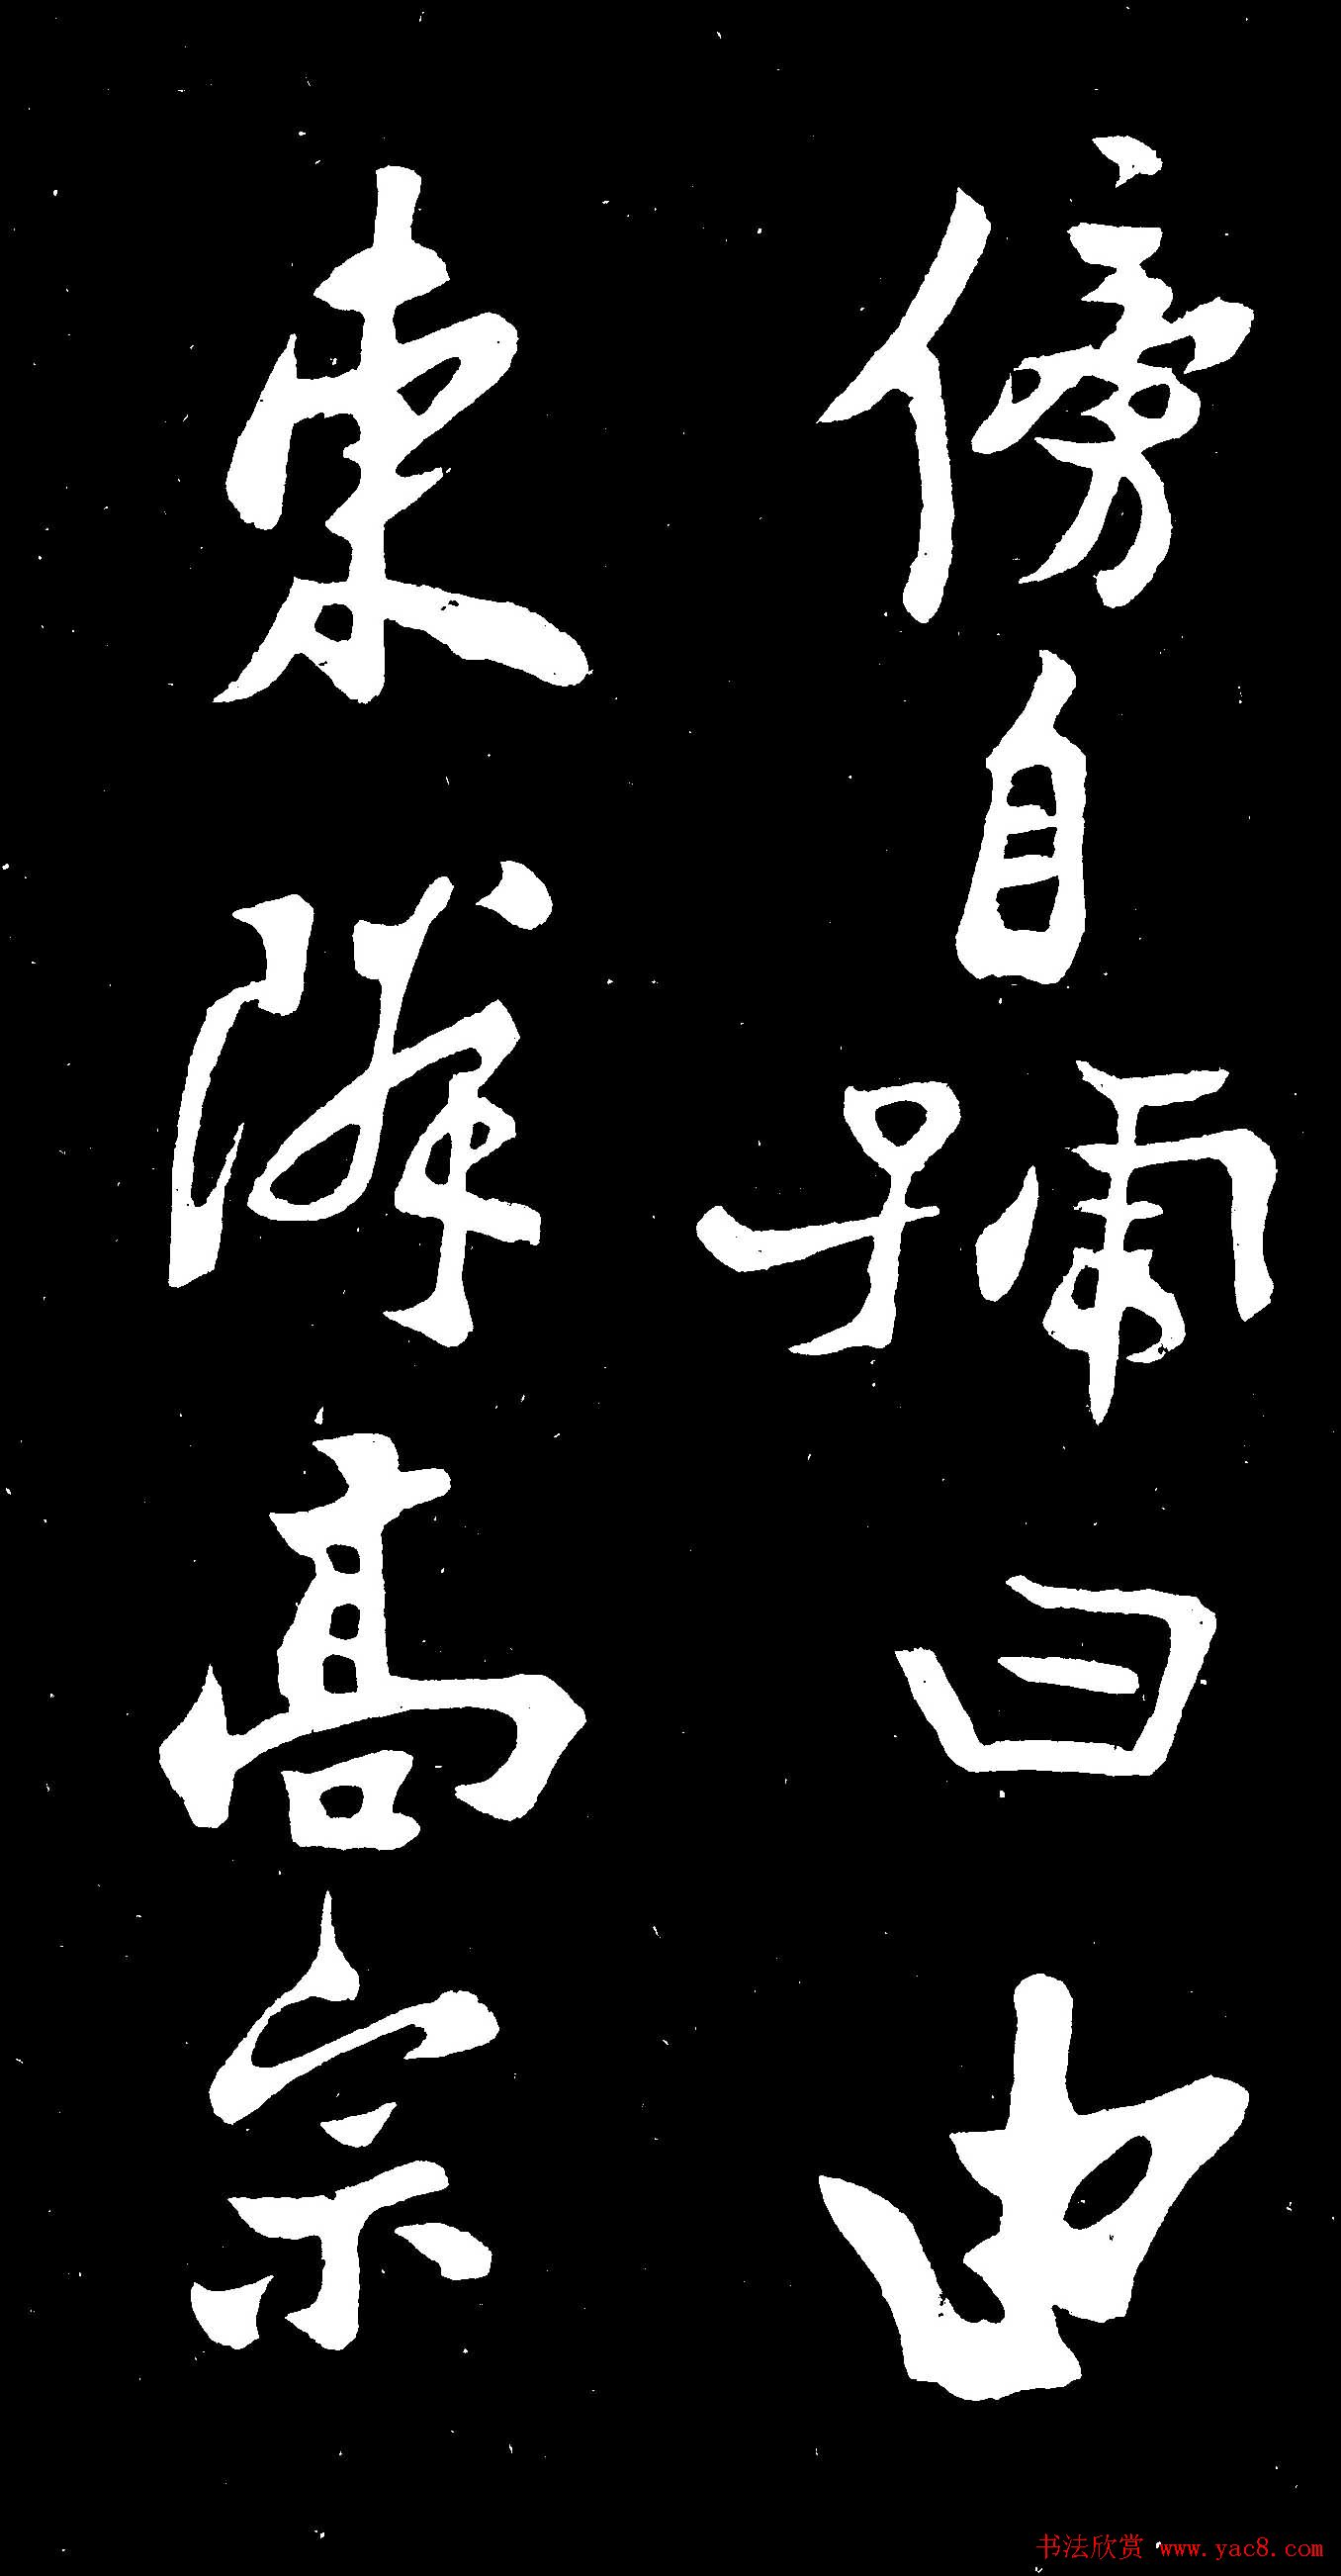 傍自號曰由
東隣高宗
书法欣赏 www.yac8.com